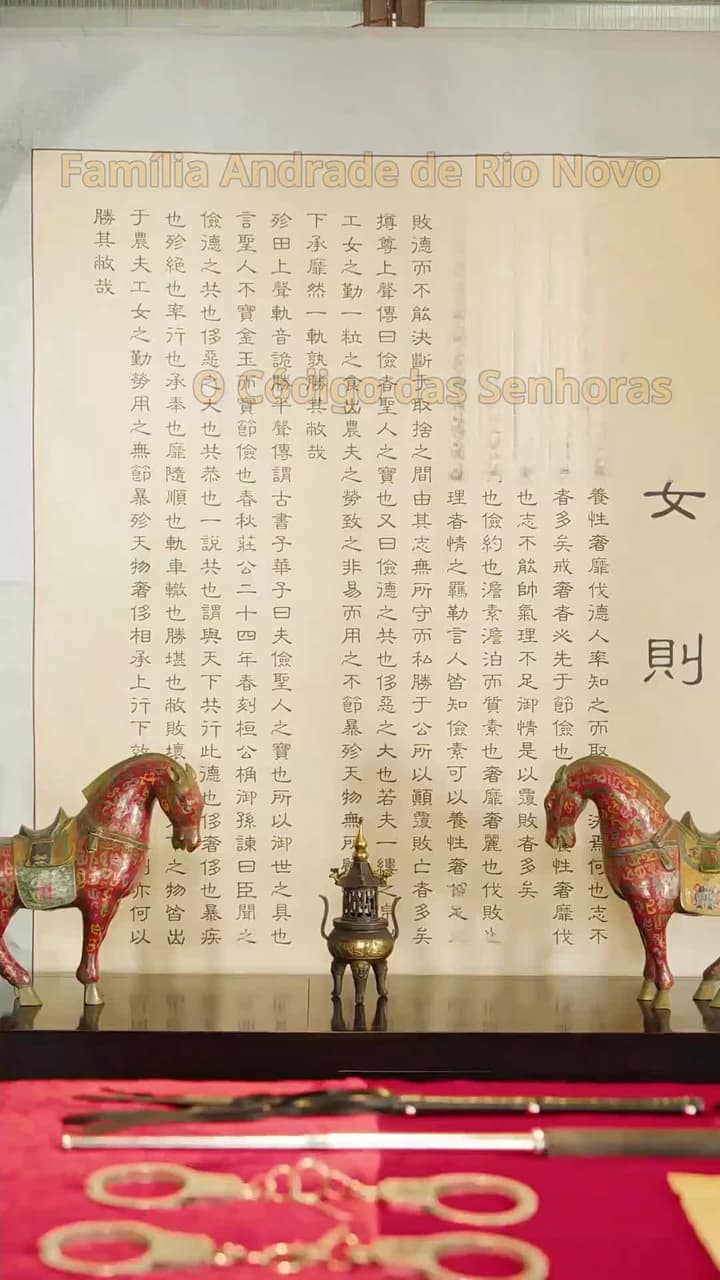 Família Andrade de Rio Novo
O Código das Senhoras
女則
養性奢靡伐德人率知之而取決焉何也志不
者多矣戒奢者必先于節儉也養性奢靡伐
也志不能帥氣理不足御情是以覆敗者多矣
也儉約也澹素澹泊而質素也奢靡奢麗也伐敗也
理者情之羈勒言人皆知儉素可以養性奢
敗德而不能決斷于取捨之間由其志無所守而私勝于公所以顚覆敗亡者多矣
撙尊上聲傳曰儉者聖人之寶也又曰儉德之共也侈惡之大也若夫一縷之帛
工女之勤一粒之食出農夫之勞致之非易而用之不節暴殄天物無所
下承靡然一軌孰勝其敝哉
殄田上聲軌音詭勝平聲傳謂古書子華子曰夫儉聖人之寶也所以御世之具也
言聖人不寶金玉而寶節儉也春秋莊公二十四年春刻桓公桷御孫諫曰臣聞之
儉德之共也侈惡之大也共恭也一說共也謂與天下共行此德也侈奢侈也暴疾
也殄絕也率行也承奉也靡隨順也軌車轍也勝堪也敝敗壞之物皆出
于農夫工女之勤勞用之無節暴殄天物奢侈相承上行下效亦何以
勝其敝哉